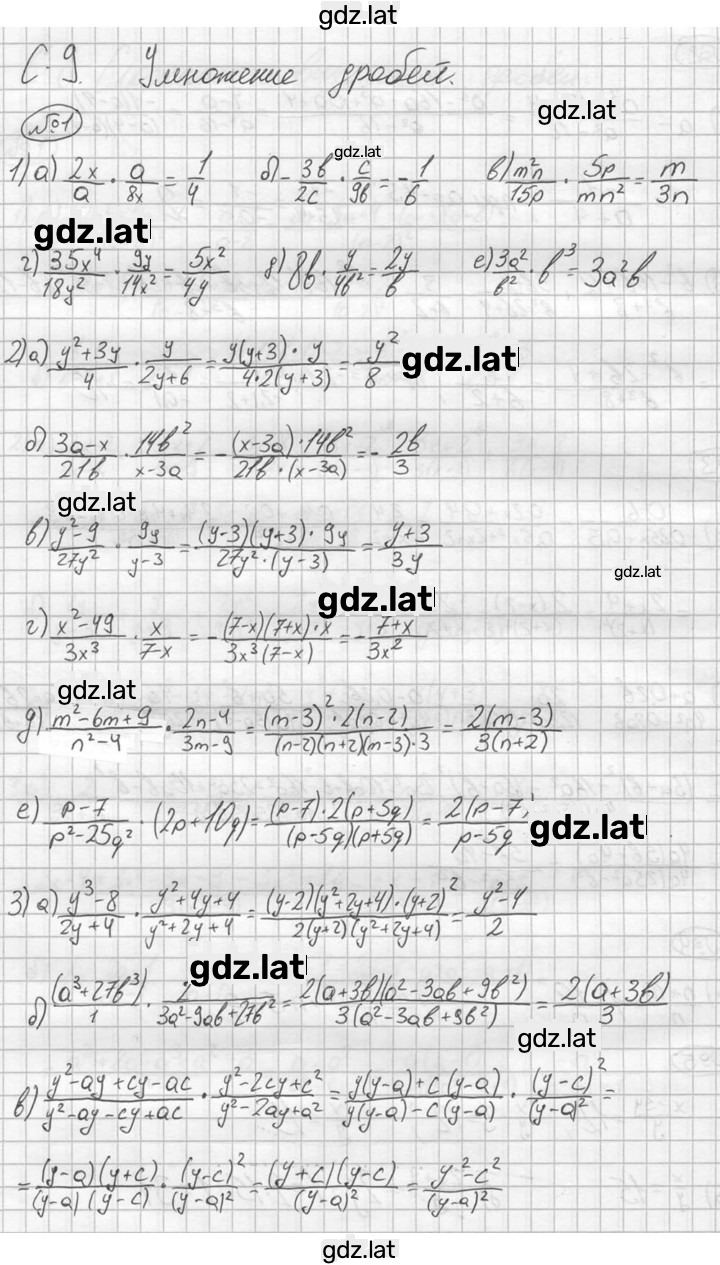 gdz.lat
С-9. Умножение дробей.
gdz.lat
№1
gdz.lat
1) а) 2x/a · a/8x = 1/4 б) -3b/2c · c/9b = -1/6 в) m²n/15p · 5p/mn² = m/3n
gdz.lat
г) 35x⁴/18y² · 9y/14x² = 5x²/4y д) 8b · y/4b² = 2y/b е) 3a²/b² · b³ = 3a²b
2) а) (y²+3y)/4 · y/(2y+6) = (y(y+3) · y)/(4·2(y+3)) = y²/8 gdz.lat
б) (3a-x)/21b · 14b²/(x-3a) = -((x-3a)·14b²)/(21b·(x-3a)) = -2b/3
gdz.lat
в) (y²-9)/27y² · 9y/(y-3) = ((y-3)(y+3)·9y)/(27y²·(y-3)) = (y+3)/3y
gdz.lat
gdz.lat
г) (x²-49)/3x³ · x/(7-x) = -((7-x)(7+x)·x)/(3x³(7-x)) = -(7+x)/3x²
gdz.lat
д) (m²-6m+9)/(n²-4) · (2n-4)/(3m-9) = ((m-3)²·2(n-2))/((n-2)(n+2)(m-3)·3) = 2(m-3)/3(n+2)
е) (p-7)/(p²-25q²) · (2p+10q) = ((p-7)·2(p+5q))/((p-5q)(p+5q)) = 2(p-7)/(p-5q) gdz.lat
3) а) (y³-8)/(2y+4) · (y²+4y+4)/(y²+2y+4) = ((y-2)(y²+2y+4)·(y+2)²)/(2(y+2)(y²+2y+4)) = (y²-4)/2
gdz.lat
б) (a³+27b³)/1 · 2/(3a²-9ab+27b²) = 2(a+3b)(a²-3ab+9b²)/3(a²-3ab+9b²) = 2(a+3b)/3
gdz.lat
в) (y²-ay+cy-ac)/(y²-ay-cy+ac) · (y²-2cy+c²)/(y²-2ay+a²) = (y(y-a)+c(y-a))/(y(y-a)-c(y-a)) · (y-c)²/(y-a)² =
= ((y-a)(y+c))/((y-a)(y-c)) · (y-c)²/(y-a)² = ((y+c)(y-c))/(y-a)² = (y²-c²)/(y-a)²
gdz.lat